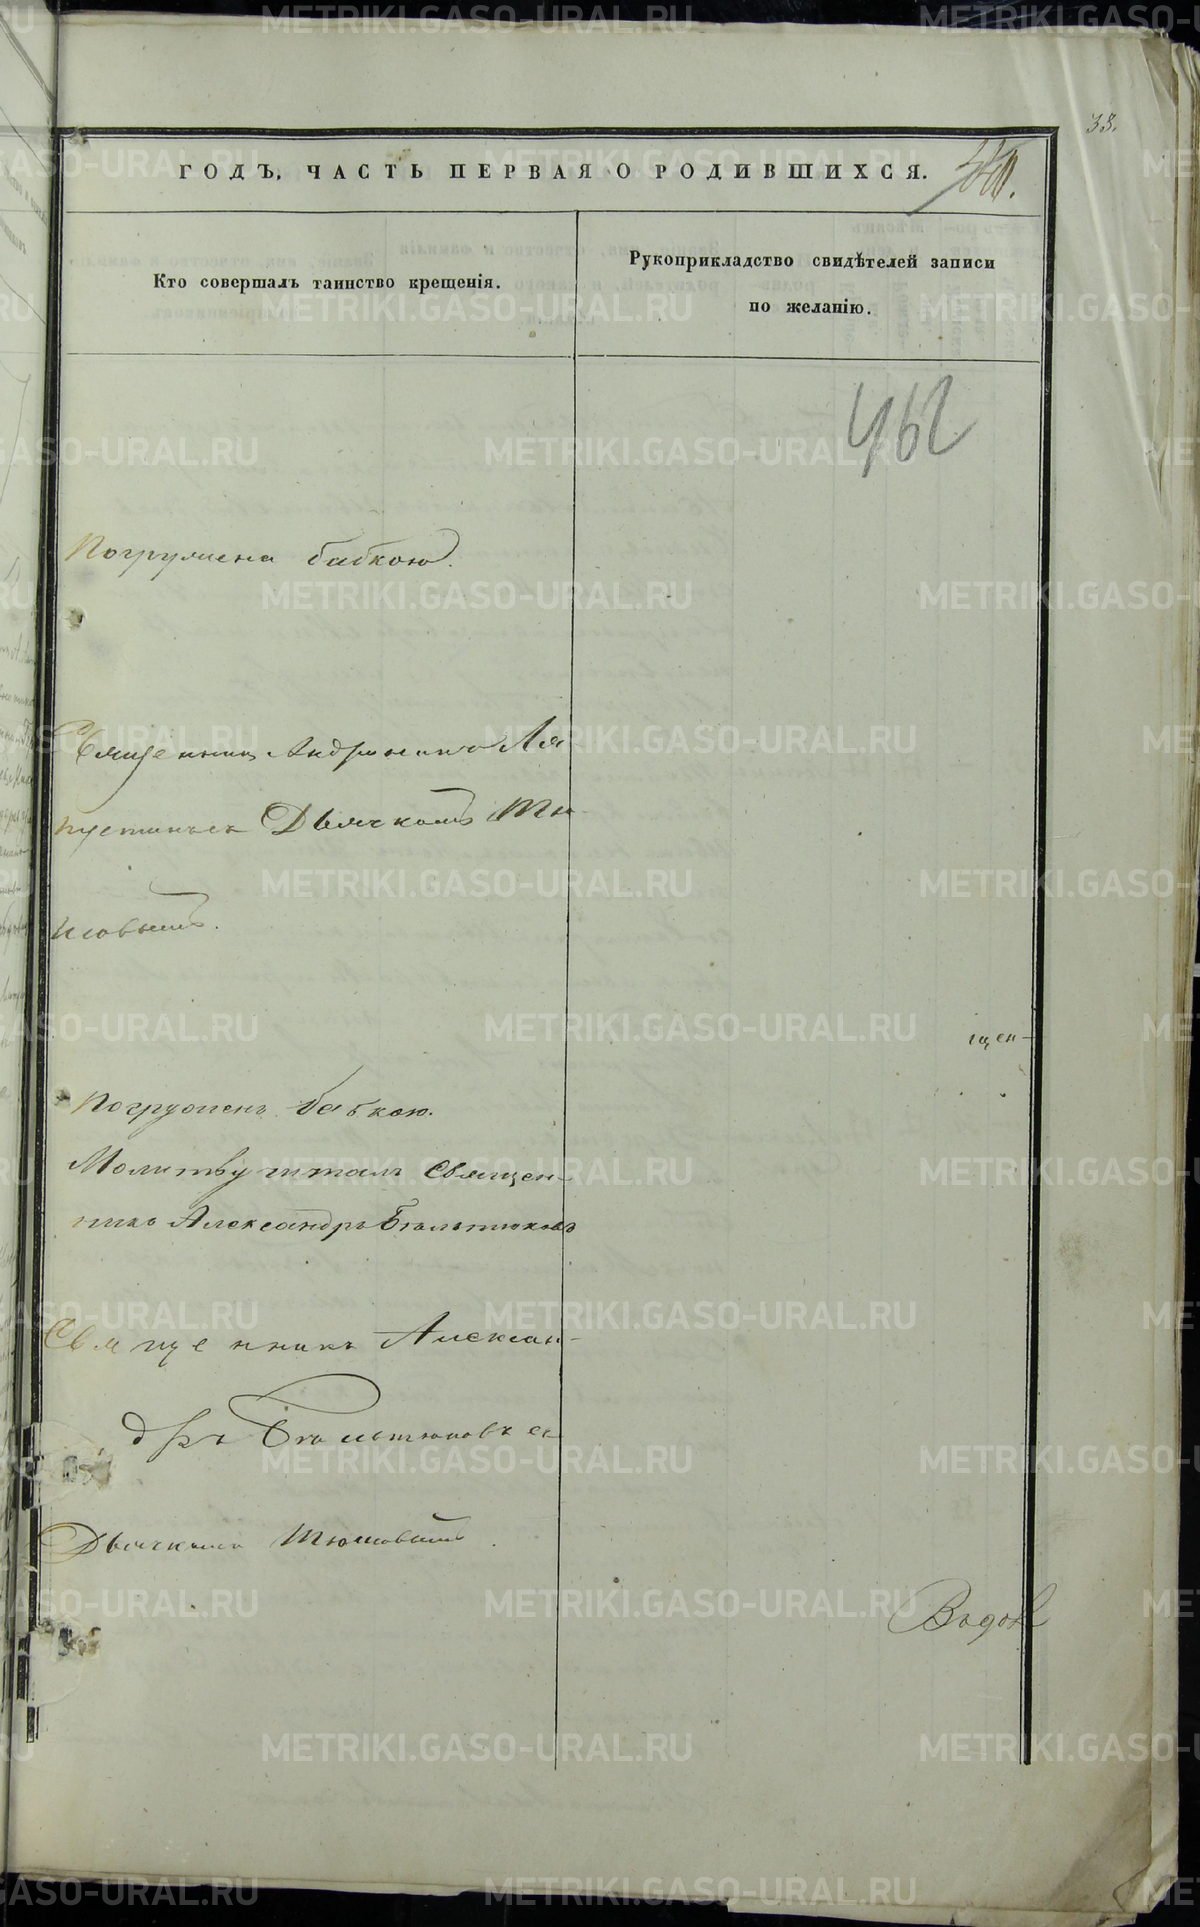 38.
ГОДЪ, ЧАСТЬ ПЕРВАЯ О РОДИВШИХСЯ.
Кто совершалъ таинство крещенія.
Рукоприкладство свидѣтелей записи
по желанію.
462
Погружена бабкою.
Священникъ Андроникъ Ля-
пустинъ съ Дьячкомъ Тю-
мовымъ.
щен-
Погруженъ бабкою.
Молитву читалъ Священ-
никъ Александръ
Священникъ Алексан-
дръ съ
Дьячкомъ Тюмовымъ
METRIKI.GASO-URAL.RU